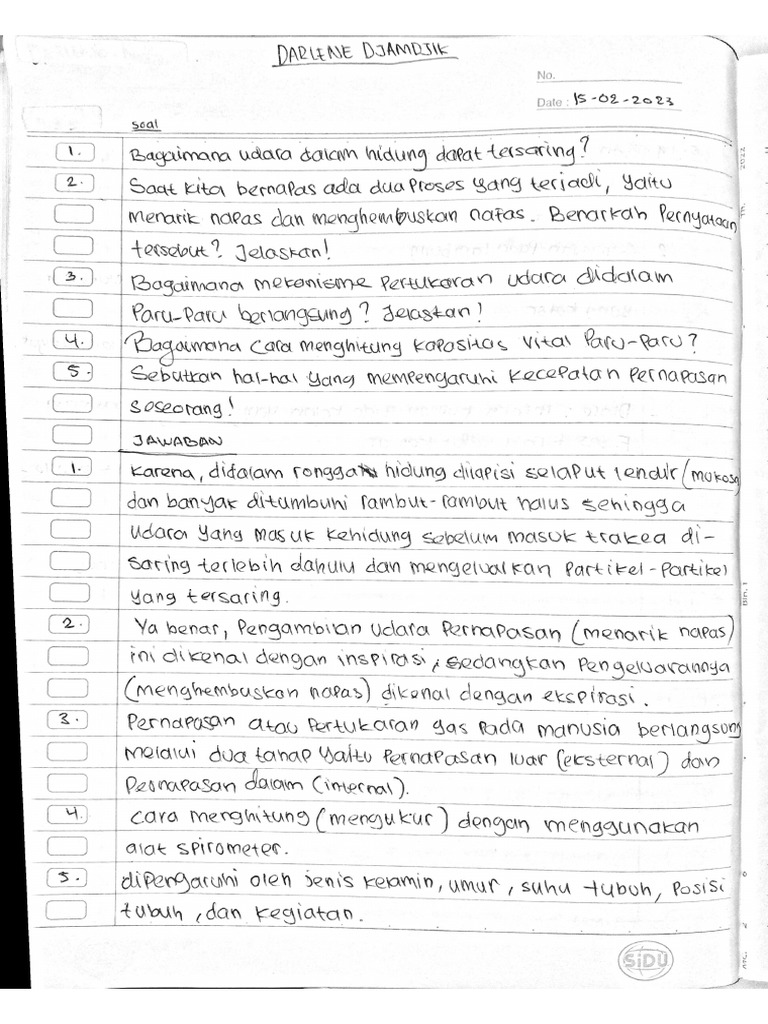 DARLENE DJAMDJIK
No.
Date : 15-02-2023
soal
1. Bagaimana udara dalam hidung dapat tersaring?
2. Saat kita bernapas ada dua proses yang terjadi, yaitu
menarik napas dan menghembuskan nafas. Benarkah Pernyataan
tersebut? Jelaskan!
3. Bagaimana mekanisme Pertukaran udara didalam
Paru-Paru berlangsung? Jelaskan!
4. Bagaimana cara menghitung kapasitas vital Paru-Paru?
5. Sebutkan hal-hal yang mempengaruhi kecepatan Pernapasan
soseorang!
JAWABAN
1. Karena, didalam rongga hidung dilapisi selaput lendir (mukosa)
dan banyak ditumbuhi rambut-rambut halus sehingga
udara yang masuk kehidung sebelum masuk trakea di-
saring terlebih dahulu dan mengeluarkan Partikel-Partikel
yang tersaring.
2. Ya benar, Pengambian udara Pernapasan (menarik napas)
ini dikenal dengan inspirasi, sedangkan Pengeluarannya
(menghembuskan napas) dikenal dengan ekspirasi.
3. Pernapasan atau Pertukaran gas Pada manusia berlangsung
melalui dua tahap yaitu Pernapasan luar (eksternal) dan
Pernapasan dalam (internal).
4. Cara menghitung (mengukur) dengan menggunakan
alat spirometer.
5. dipengaruhi oleh jenis kelamin, umur, suhu tubuh, Posisi
tubuh, dan kegiatan.
SiDU